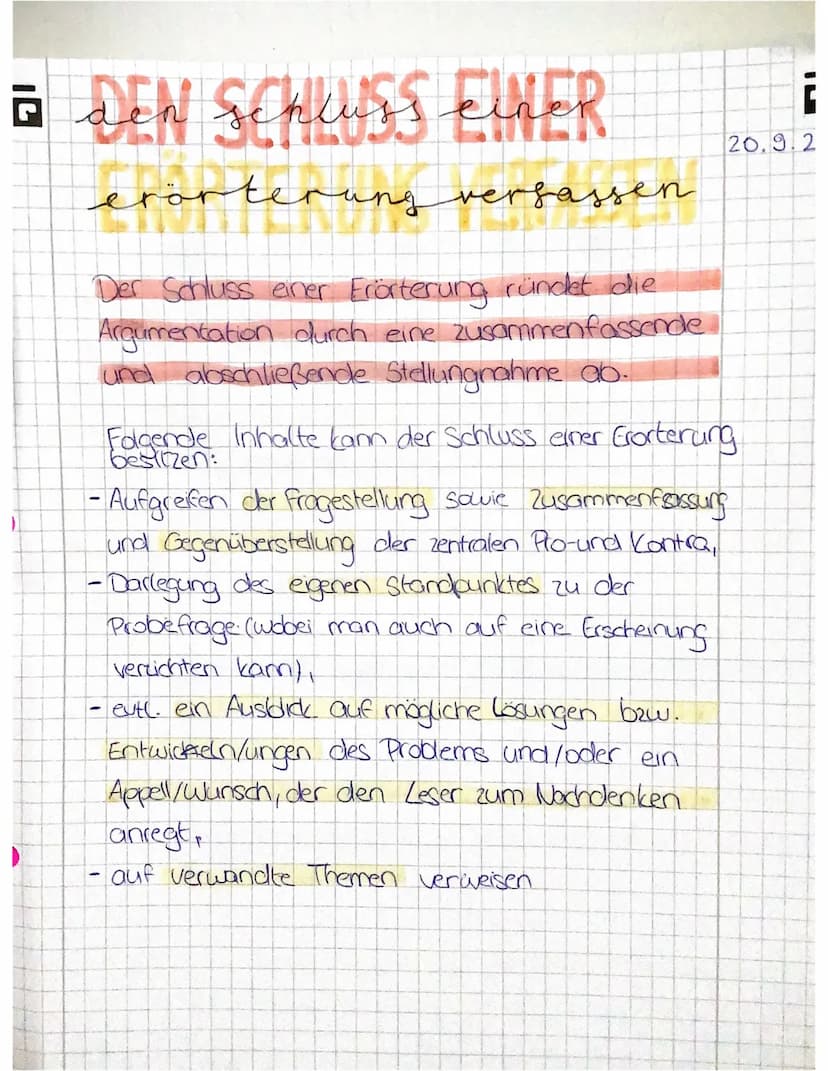 DEN SCHLUSS EINER
den schluss einer
20.9.2
ERÖRTERUNG VERFASSEN
erörterung verfassen
Der Schluss einer Erörterung ründet die
Argumentation durch eine zusammenfassende
und abschließende Stellungnahme ab.
Folgende Inhalte kann der Schluss einer Erörterung
besitzen:
- Aufgreifen der Fragestellung sowie Zusammenfassung
und Gegenüberstellung der zentralen Pro-und Kontra,
- Darlegung des eigenen Standpunktes zu der
Probefrage (wobei man auch auf eine Erscheinung
verzichten kann),
- evtl. ein Ausblick auf mögliche Lösungen bzw.
Entwickeln/ungen des Problems und/oder ein
Appell/Wunsch, der den Leser zum Nachdenken
anregt,
- auf verwandte Themen verweisen